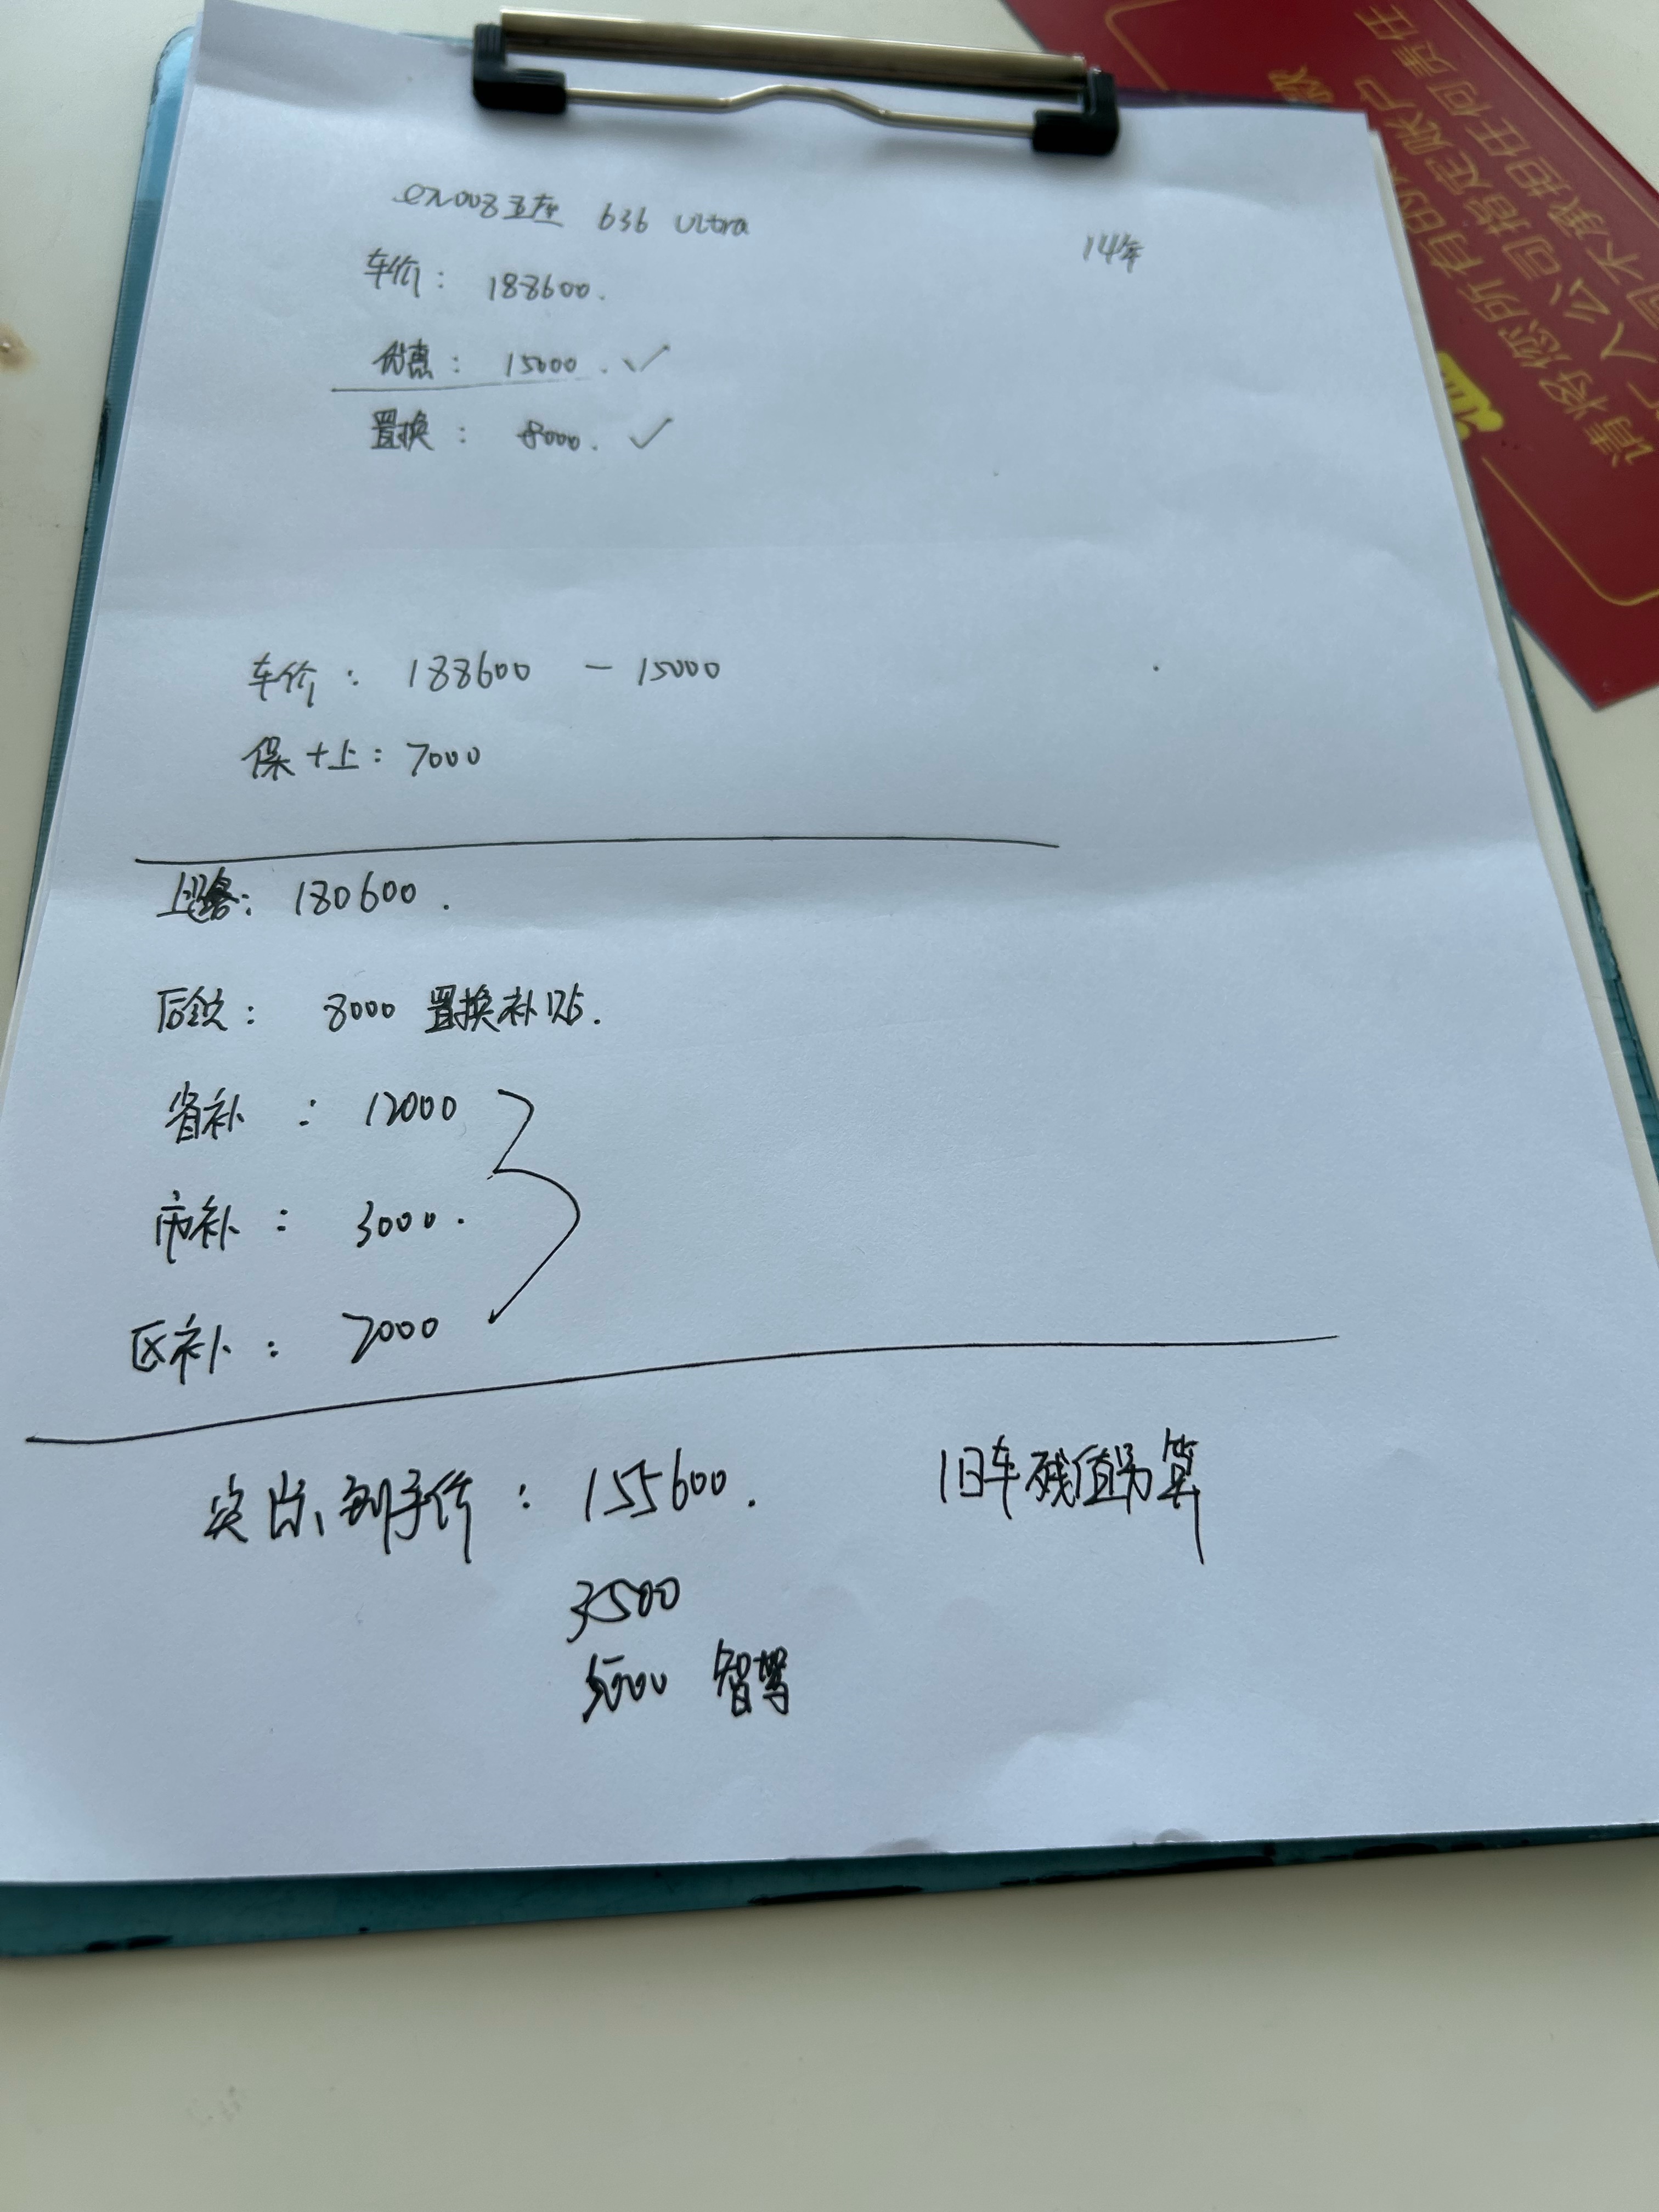 eπ008五座 636 Ultra
14年
车价: 188600.
优惠: 15000. ✓
置换: 8000. ✓
车价: 188600 - 15000
保+上: 7000
上路: 180600.
后续: 8000 置换补贴.
省补: 12000
市补: 3000.
区补: 2000
实际到手价: 155600.
旧车残值另算
3500
5000 智驾
请将您所有的
人公司指定账户
不承担任何责任